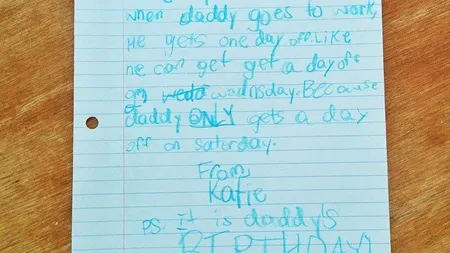 when daddy goes to work,
He gets one day off. Like
he can get get a day off
on wadnsday. Because
daddy ONLY gets a day
off on saturday.
From,
Katie
PS. It is daddy's
BIRTHDAY!